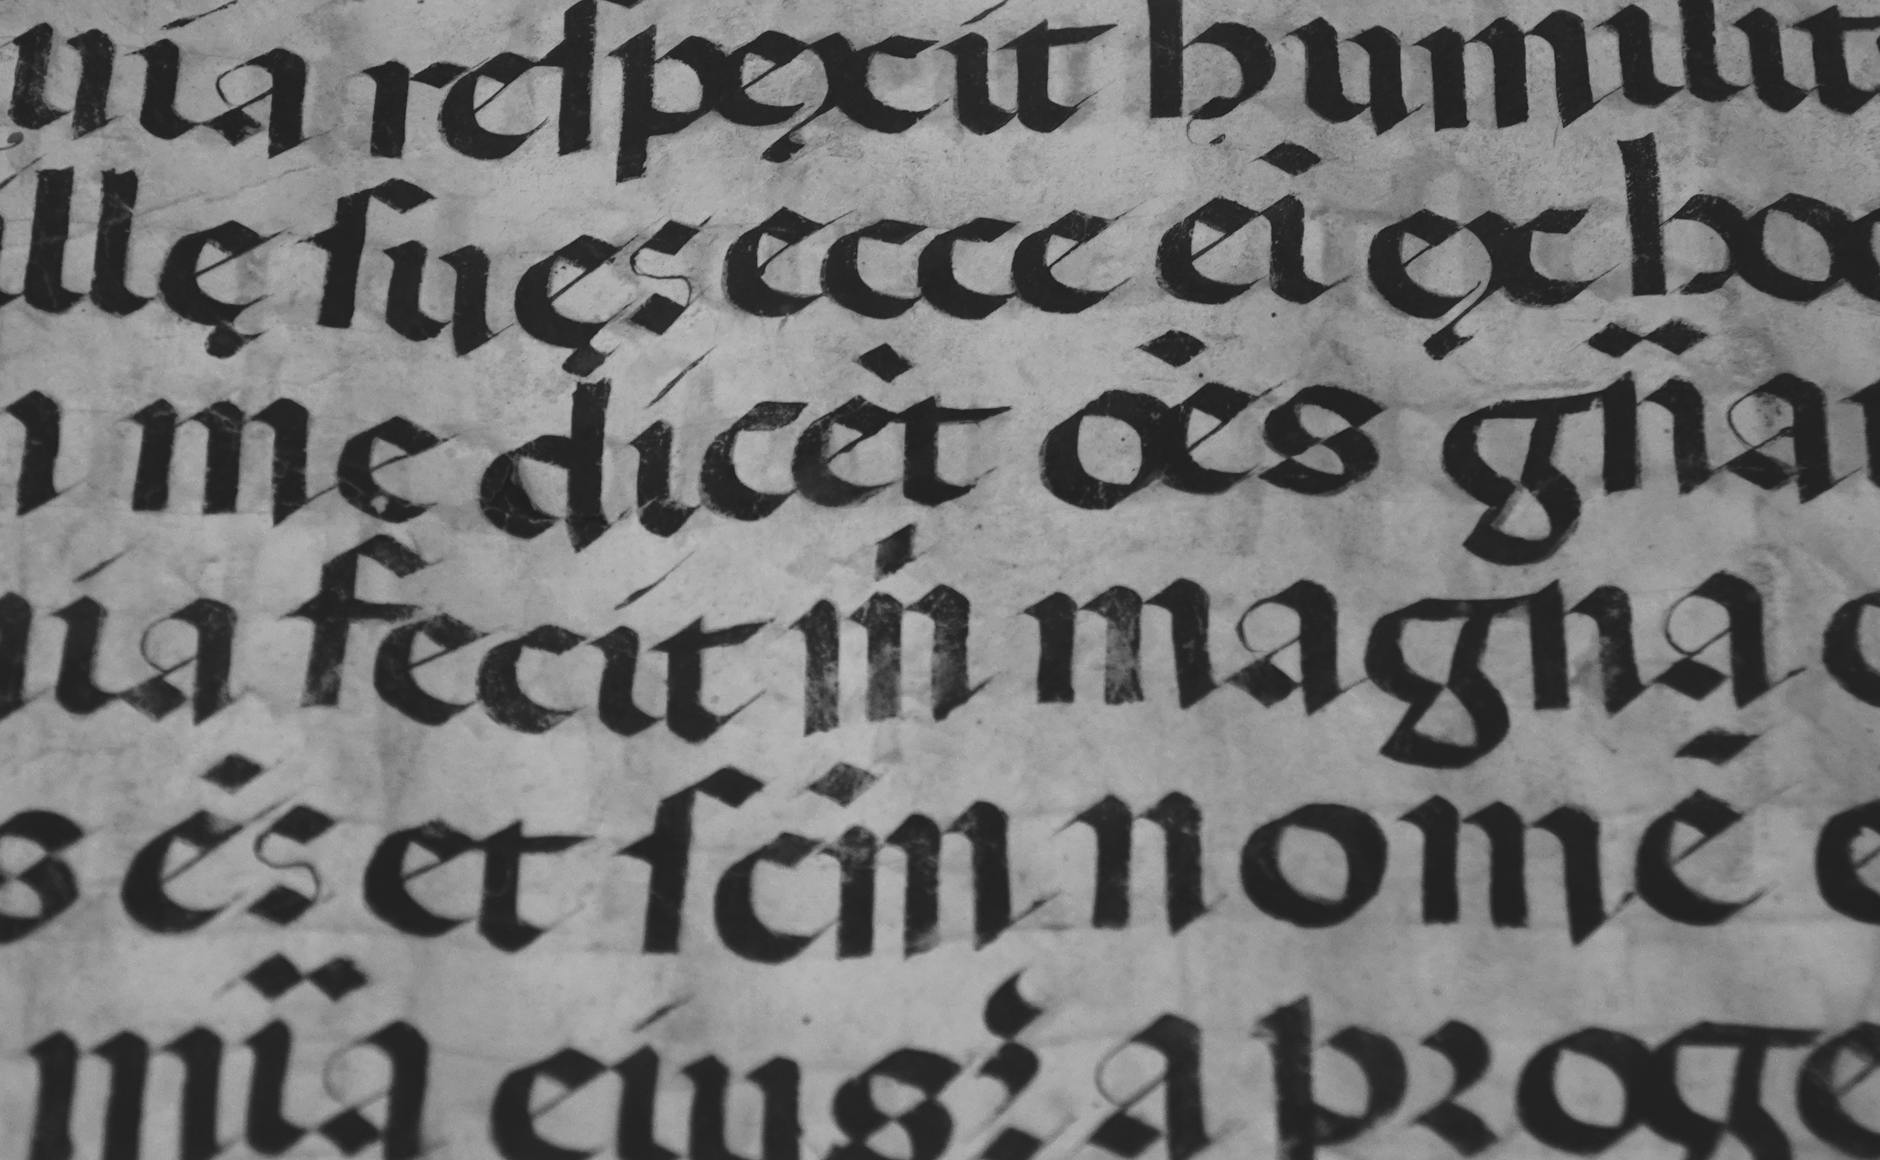 uia reſpęxit humilit
illę ſuęs ecce ei ęx hoc
i me dicėt oės gn̈a
uia fecit m̍ magna
s ės et ſcṁ nomē e
mïa eius: a proge